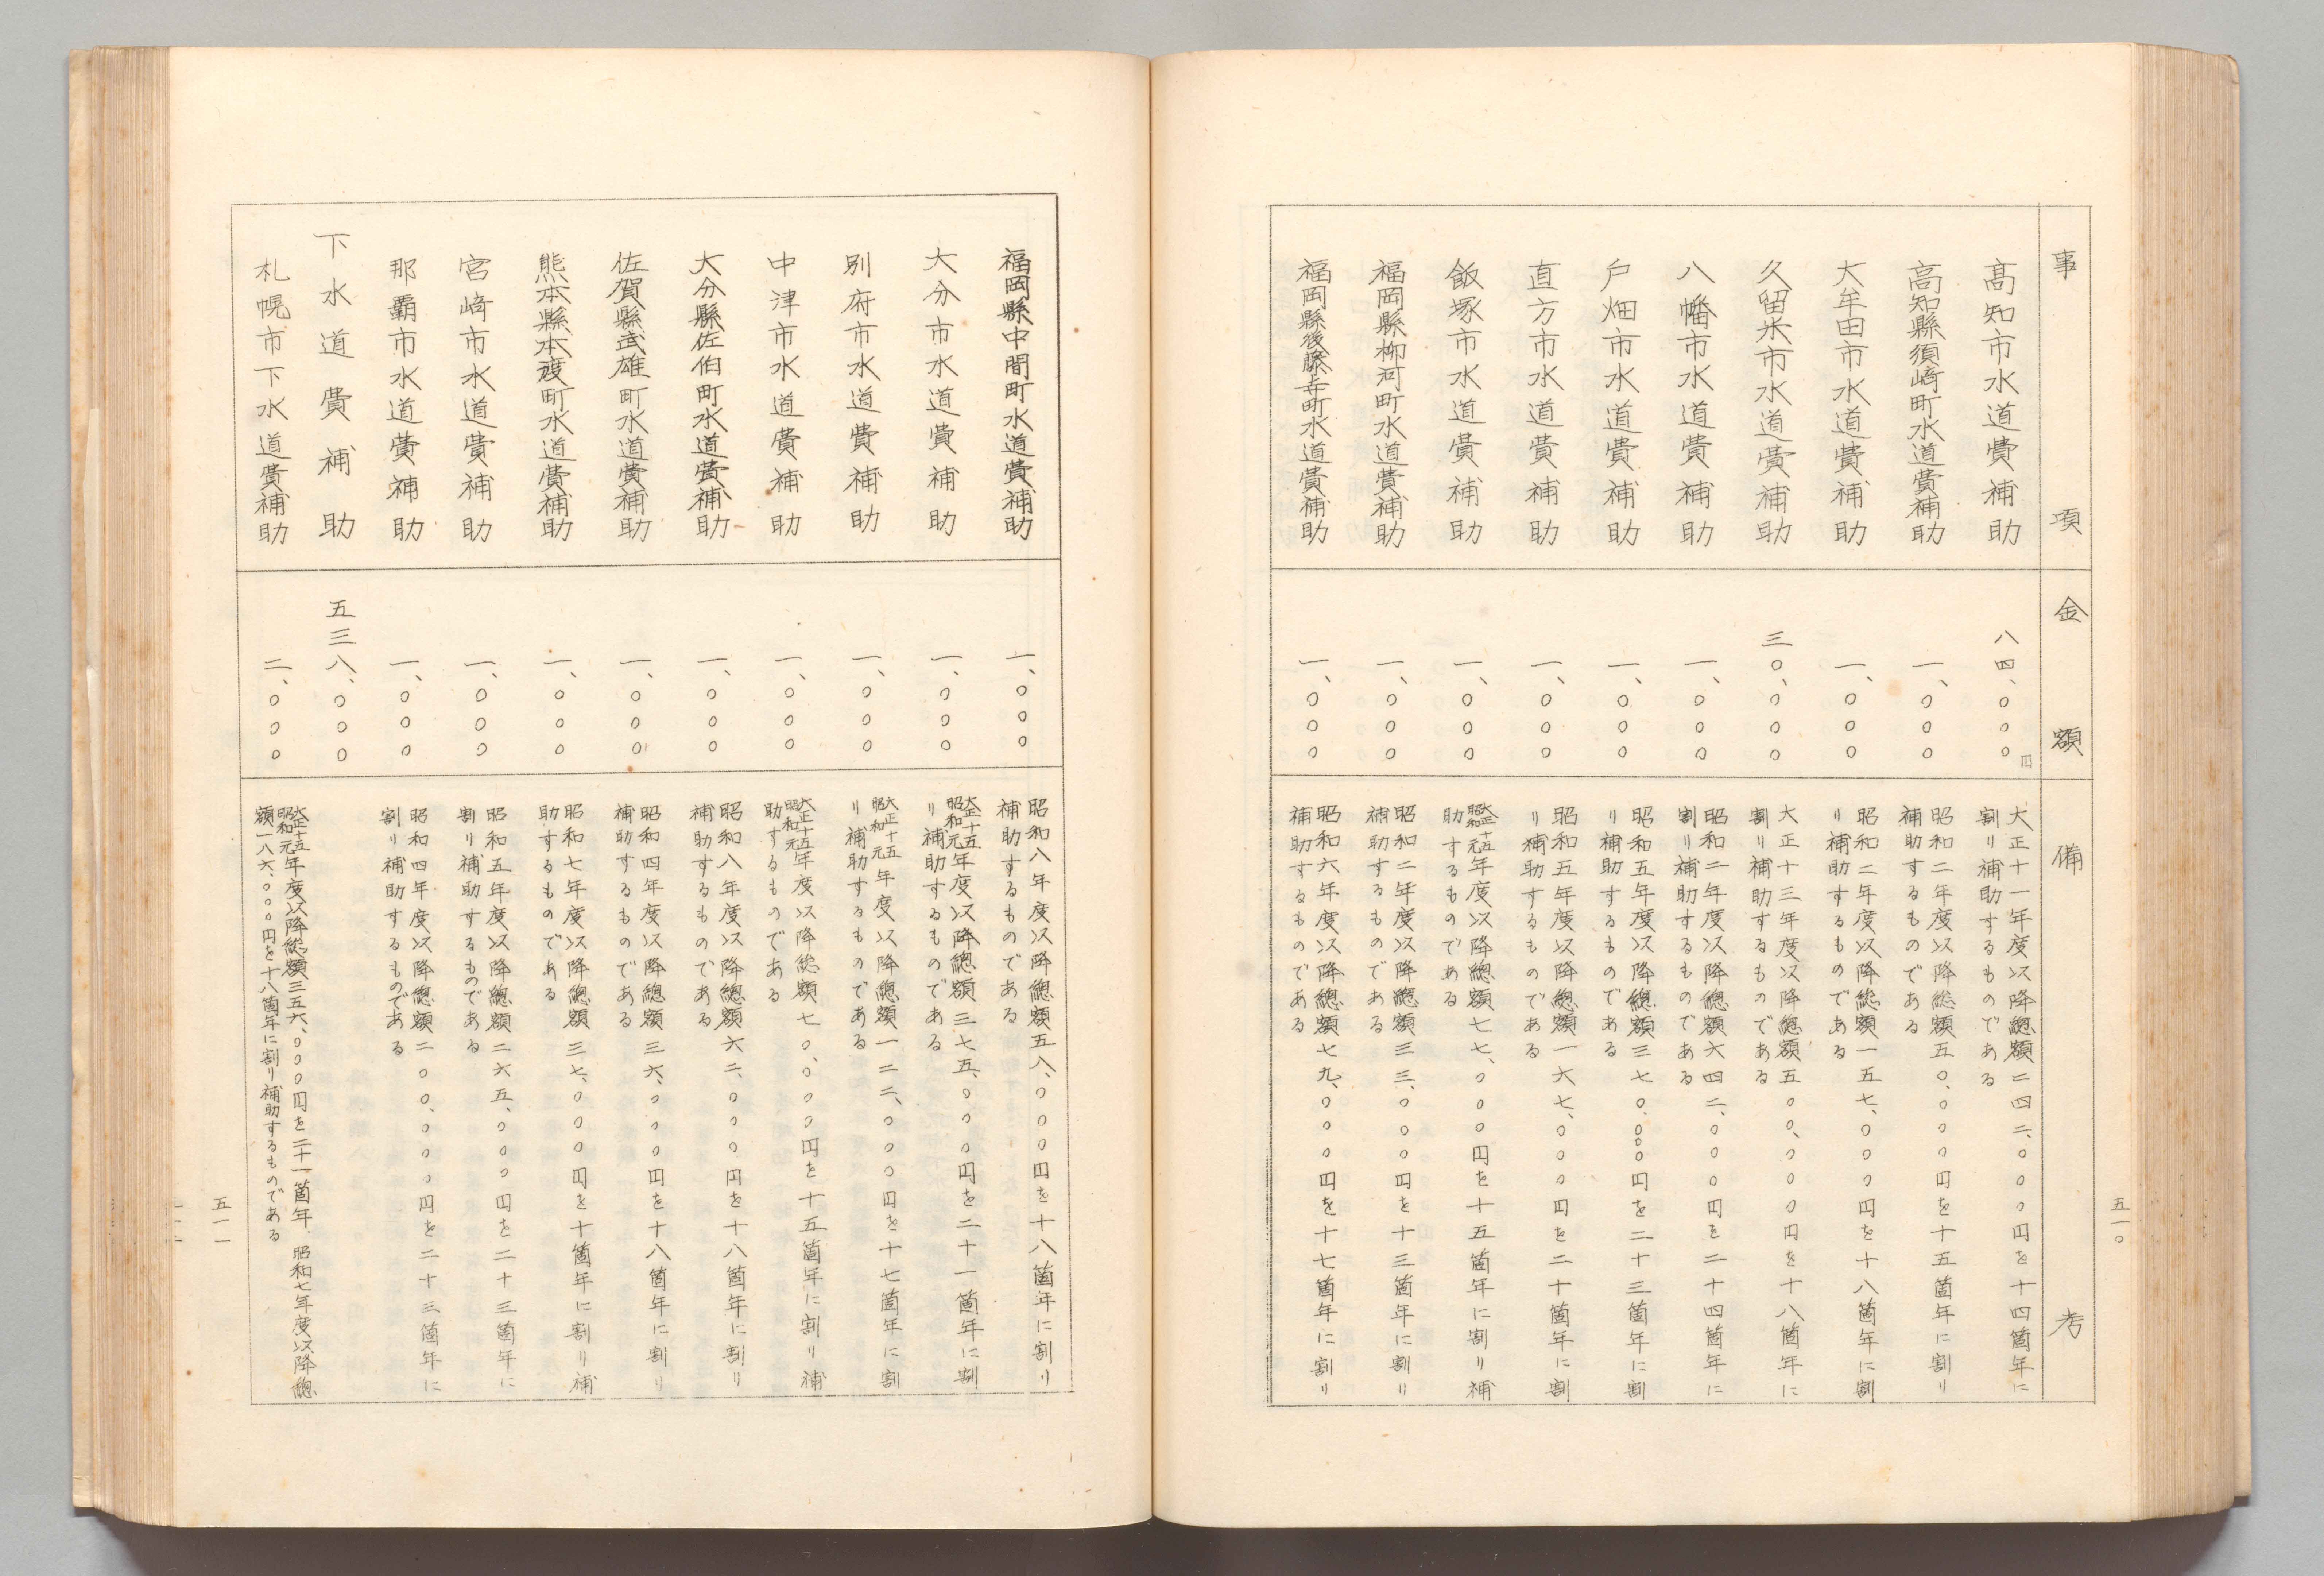 五一〇
事項
金額
備考
高知市水道費補助
八四、〇〇〇円
大正十一年度以降總額二四二、〇〇〇円を十四箇年に
割り補助するものである
高知縣須崎町水道費補助
一、〇〇〇
昭和二年度以降総額五〇、〇〇〇円を十五箇年に割り
補助するものである
大牟田市水道費補助
一、〇〇〇
昭和二年度以降総額一五七、〇〇〇円を十八箇年に割
り補助するものである
久留米市水道費補助
三〇、〇〇〇
大正十三年度以降總額五〇〇、〇〇〇円を十八箇年に
割り補助するものである
八幡市水道費補助
一、〇〇〇
昭和二年度以降總額六四二、〇〇〇円を二十四箇年に
割り補助するものである
戸畑市水道費補助
一、〇〇〇
昭和五年度以降總額三七〇、〇〇〇円を二十三箇年に割
り補助するものである
直方市水道費補助
一、〇〇〇
昭和五年度以降總額一六七、〇〇〇円を二十箇年に割
り補助するものである
飯塚市水道費補助
一、〇〇〇
大正十五昭和元年度以降總額七七、〇〇〇円を十五箇年に割り補
助するものである
福岡縣柳河町水道費補助
一、〇〇〇
昭和二年度以降總額三三、〇〇〇円を十三箇年に割り
補助するものである
福岡縣後藤寺町水道費補助
一、〇〇〇
昭和六年度以降總額七九、〇〇〇円を十七箇年に割り
補助するものである
福岡縣中間町水道費補助
一、〇〇〇
昭和八年度以降總額五八、〇〇〇円を十八箇年に割り
補助するものである
大分市水道費補助
一、〇〇〇
大正十五昭和元年度以降總額三七五、〇〇〇円を二十一箇年に割
り補助するものである
別府市水道費補助
一、〇〇〇
大正十五昭和元年度以降總額一二二、〇〇〇円を十七箇年に割
り補助するものである
中津市水道費補助
一、〇〇〇
大正十五昭和元年度以降総額七〇、〇〇〇円を十五箇年に割り補
助するものである
大分縣佐伯町水道費補助
一、〇〇〇
昭和八年度以降總額六二、〇〇〇円を十八箇年に割り
補助するものである
佐賀縣武雄町水道費補助
一、〇〇〇
昭和四年度以降總額三六、〇〇〇円を十八箇年に割り
補助するものである
熊本縣本渡町水道費補助
一、〇〇〇
昭和七年度以降總額三七、〇〇〇円を十箇年に割り補
助するものである
宮崎市水道費補助
一、〇〇〇
昭和五年度以降總額二六五、〇〇〇円を二十三箇年に
割り補助するものである
那覇市水道費補助
一、〇〇〇
昭和四年度以降總額二〇〇、〇〇〇円を二十三箇年に
割り補助するものである
下水道費補助
五三八、〇〇〇
札幌市下水道費補助
二、〇〇〇
大正十五昭和元年度以降総額三五六、〇〇〇円を二十一箇年、昭和七年度以降總
額一八六、〇〇〇円を十八箇年に割り補助するものである
五一一